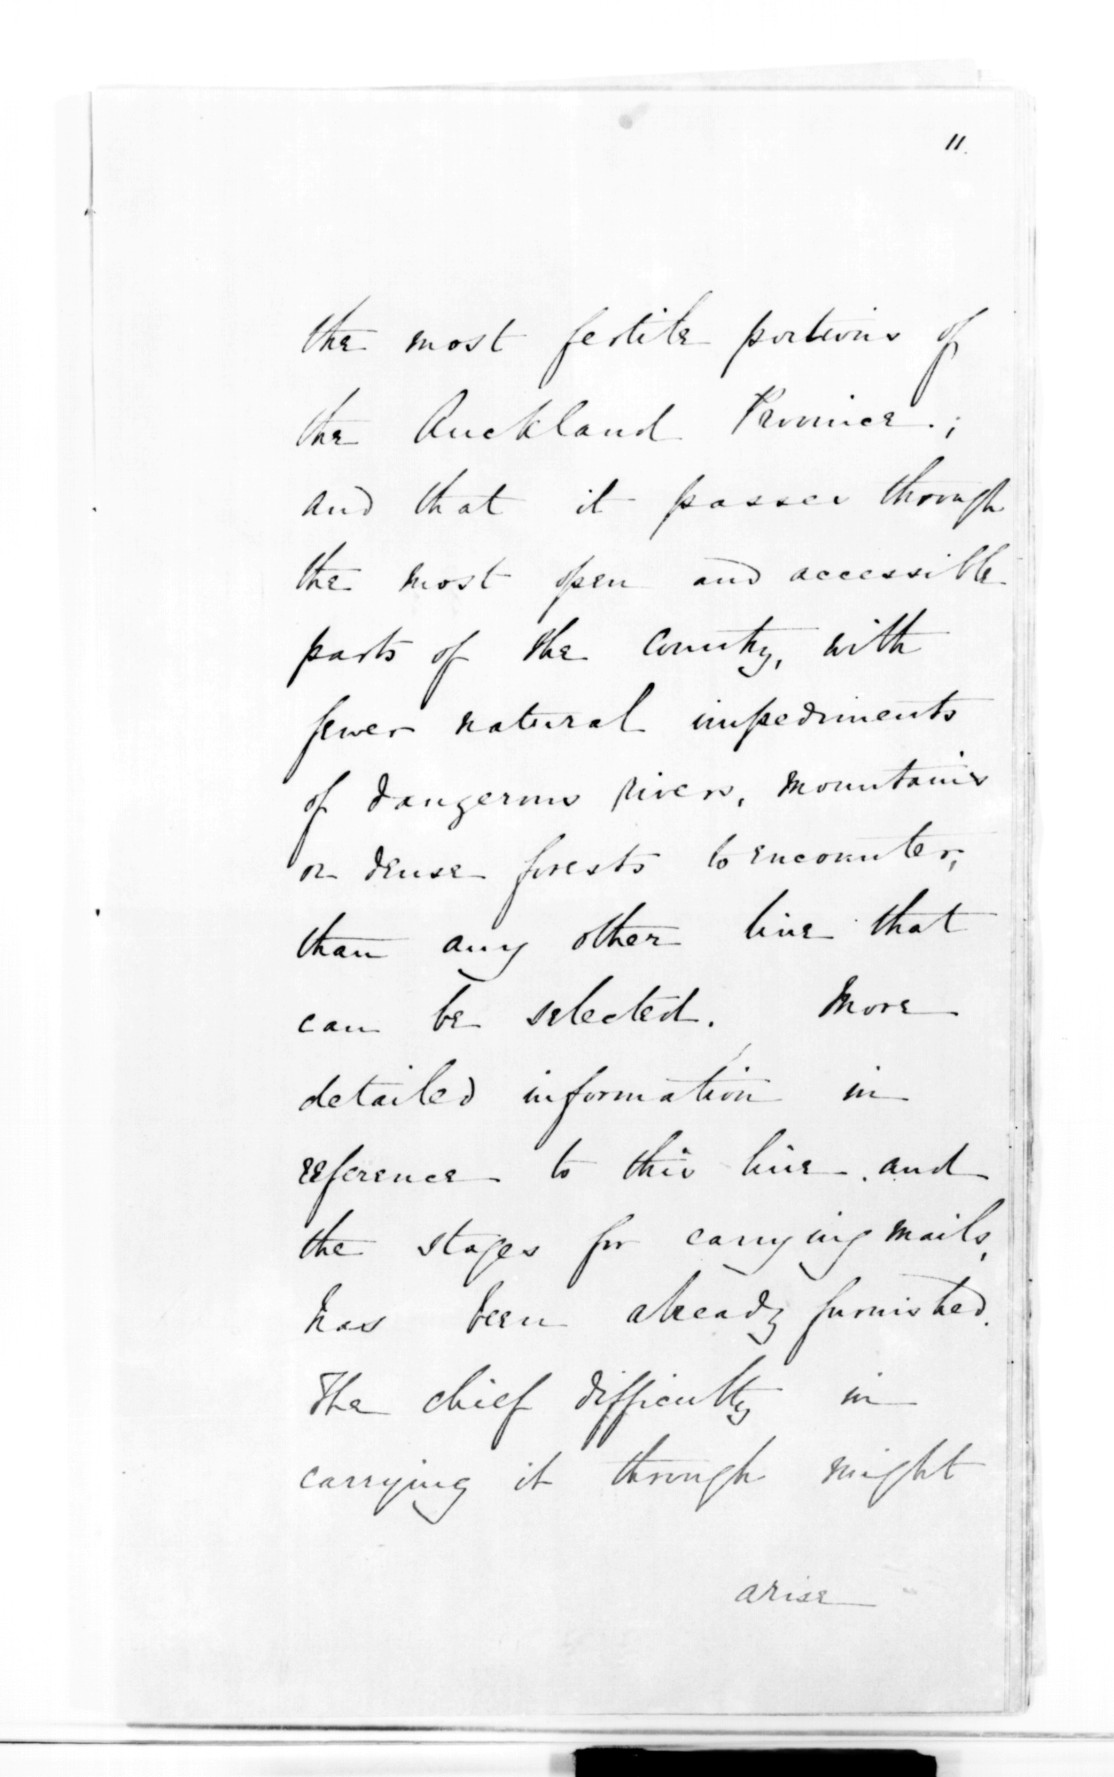 11.
the most fertile portions of
the Auckland Province.;
and that it passes through
the most open and accessible
parts of the Country, with
fewer natural impediments
of dangerous rivers, mountains
or dense forests to encounter,
than any other line that
can be selected. More
detailed information in
reference to this line and
the stages for carrying mails,
has been already furnished.
The chief difficulty in
carrying it through might
arise